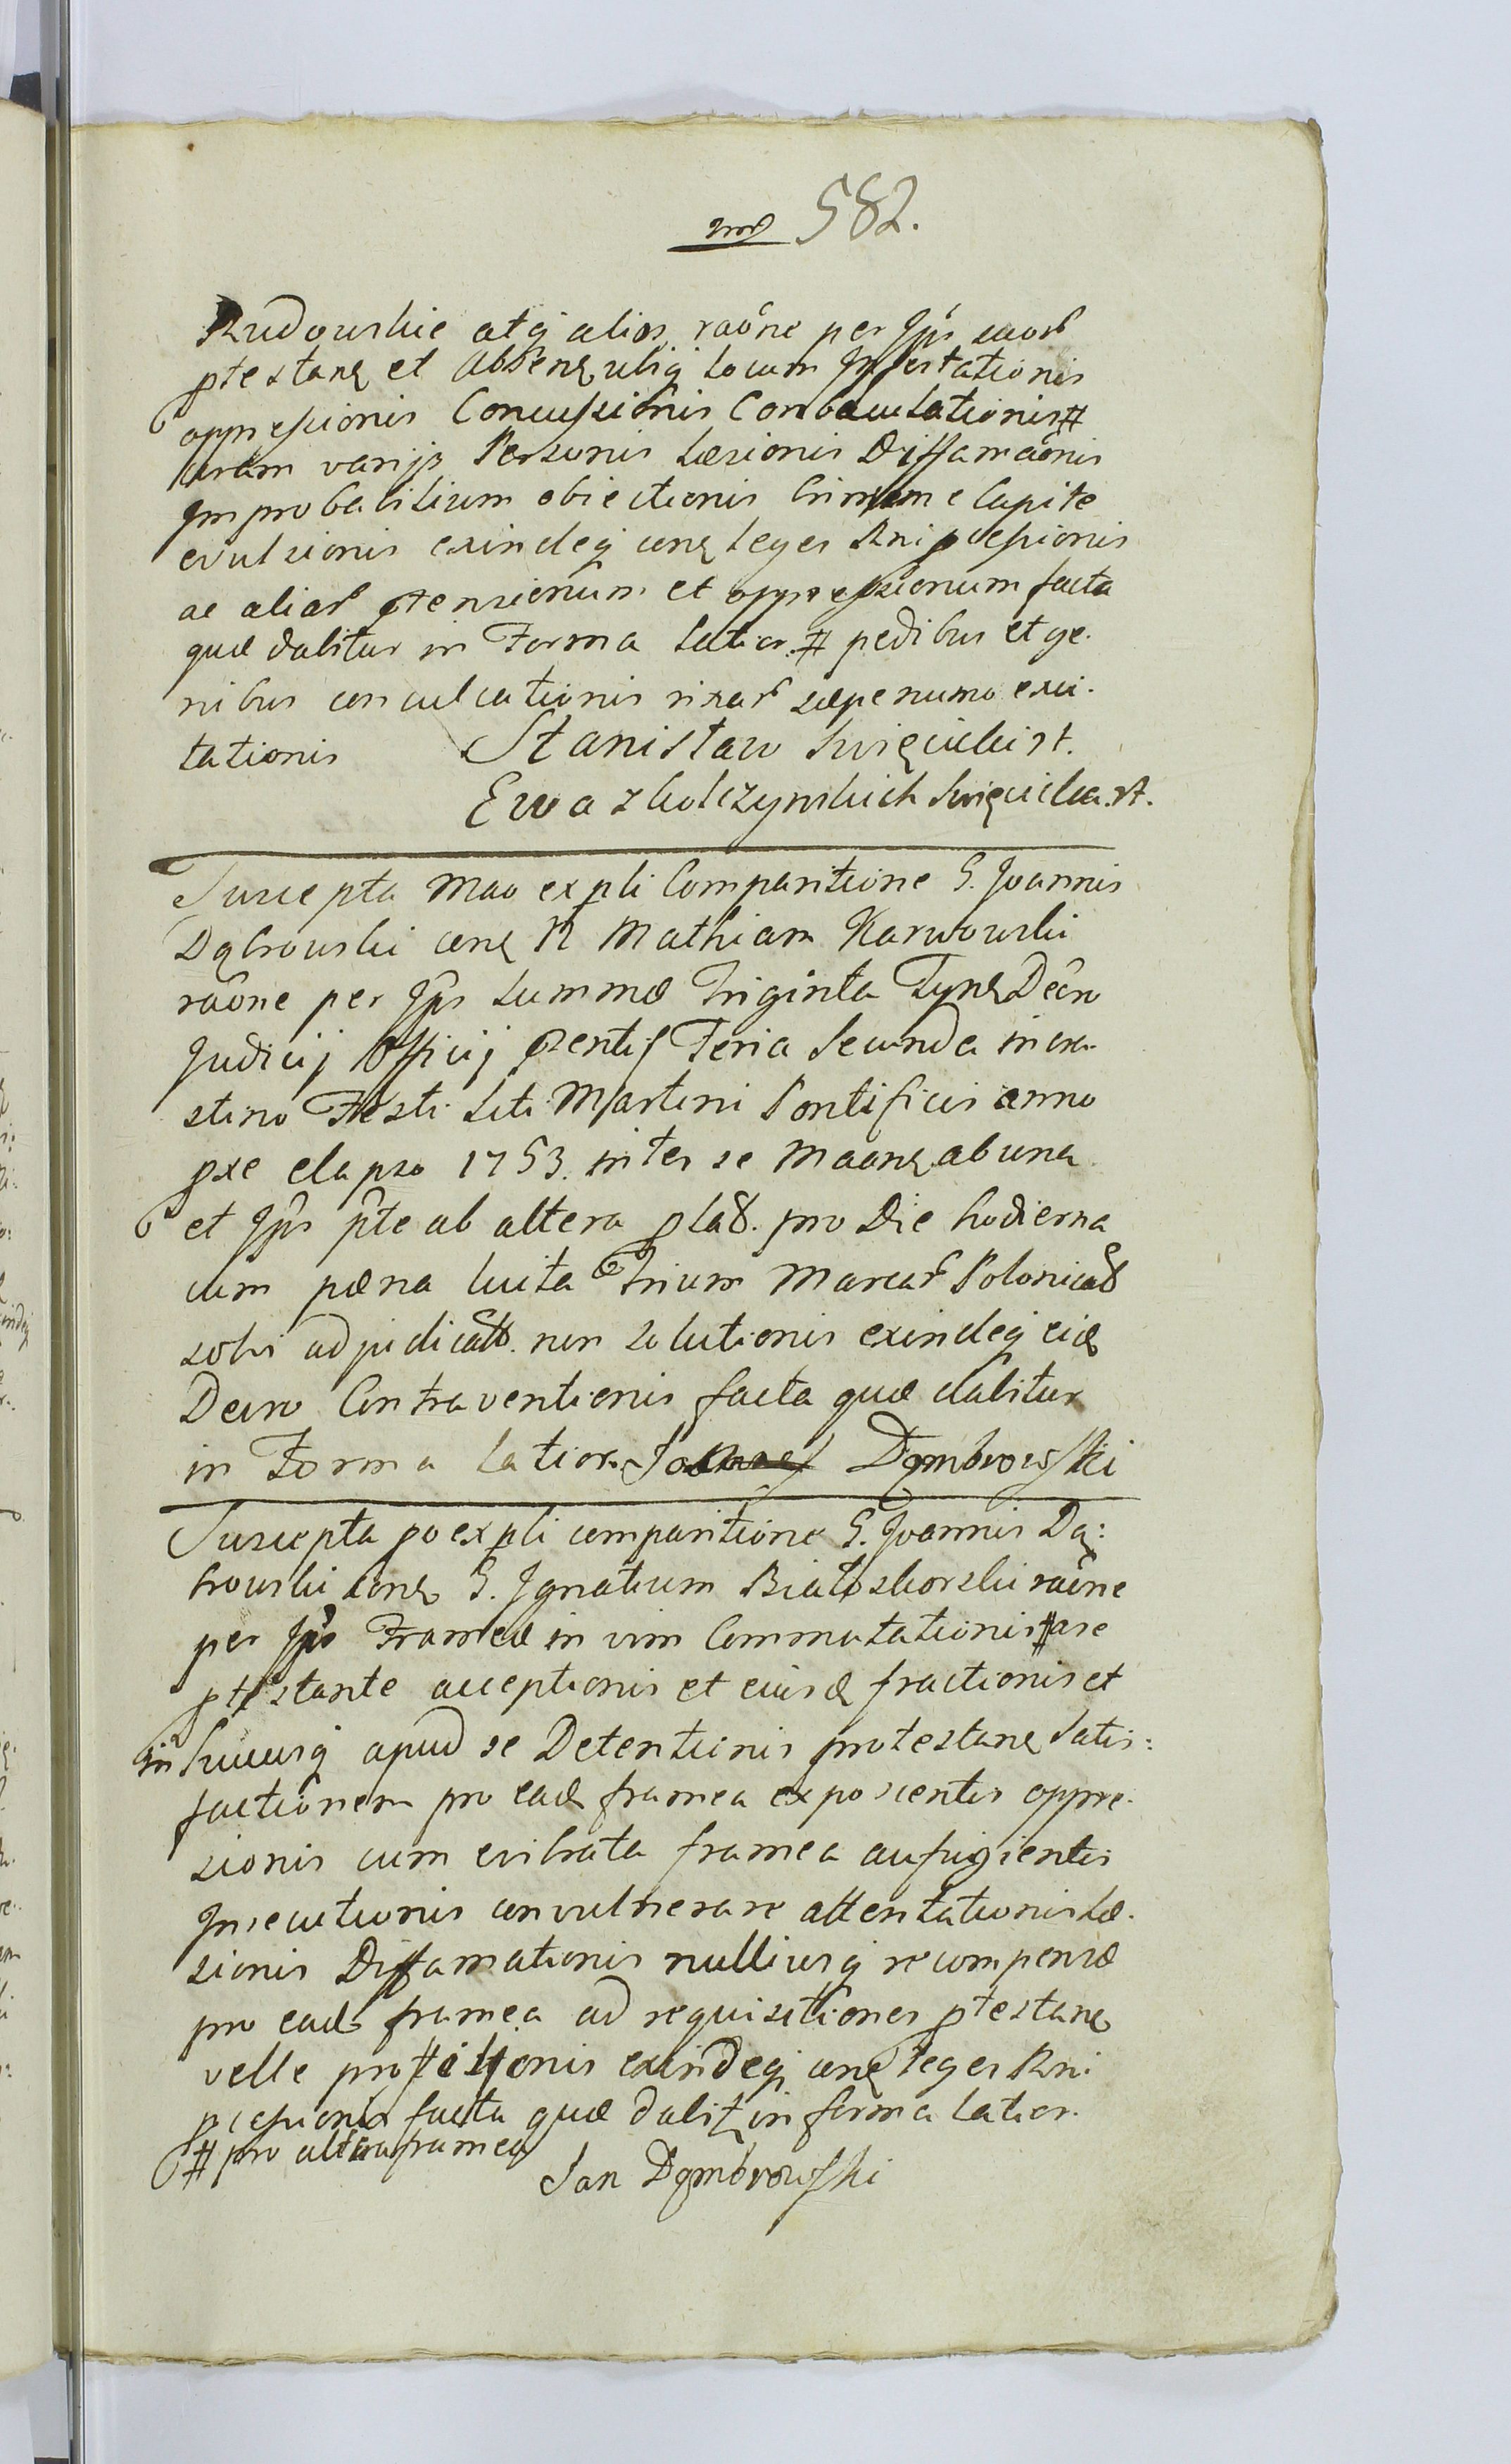 582.
Rudowskie atq alios raõne per Jps suos
ptestanę et Absenę ubiq Locum Infestationis
oppressionis Concussionis Conbaculationis #
coram varijs Personis Læsionis Diffamaõnis
Improbabilium obiectionis Crinium e Capite
evulsionis exindeq conę leges Rni pcessionis
ac aliar ptensionum et oppressionum facta
quæ dabitur in Forma Latior. # pedibus et ge.
nibus conculcationis rixar sæpenumo exci.
tationis Stanisław Swięcicki st.
Ewa z kolczynskich Swięcicka. st.
Suscepta Mao expli Comparitione G. Joannis
Dąbrowski conę N Mathiam Karwowski
raõne per Jps Summæ Triginta Tynę Decro
Judicij Officij pentis Feria Secunda in cra
stino Festi Sti Martini Pontificis anno
pxe elapso 1753. inter se Maonę ab una
et Jps pte ab altera plat. pro Die hodierna
cum pæna luita Trium Marcar Polonical
solvi adjudicatt. non Solutionis exindeq eid
Decro Contraventionis facta quæ dabitur
in Forma Latior. Dąmbrowski
Suscepta po expli comparitione G. Joannis Dą:
browski conę G. Ignatium Białoskorski raõne
per Jps Frameæ in vim Commutationis # a se
ptestante acceptionis et eiusd fractionis et
in hucusq apud se Detentionis protestanę Satis:
factionem pro ead framea exposcentis oppre.
sionis cum evibrata framea aufugientis
Insecutionis convulnerare attentationis Læ.
sionis Diffamationis nulliusq recompensæ
pro ead framea ad requisitiones ptestanę
velle exindeq conę leges Rni
pcessionis facta quæ dabit in forma latior.
# pro altera framea
Jan Dąmbrowski